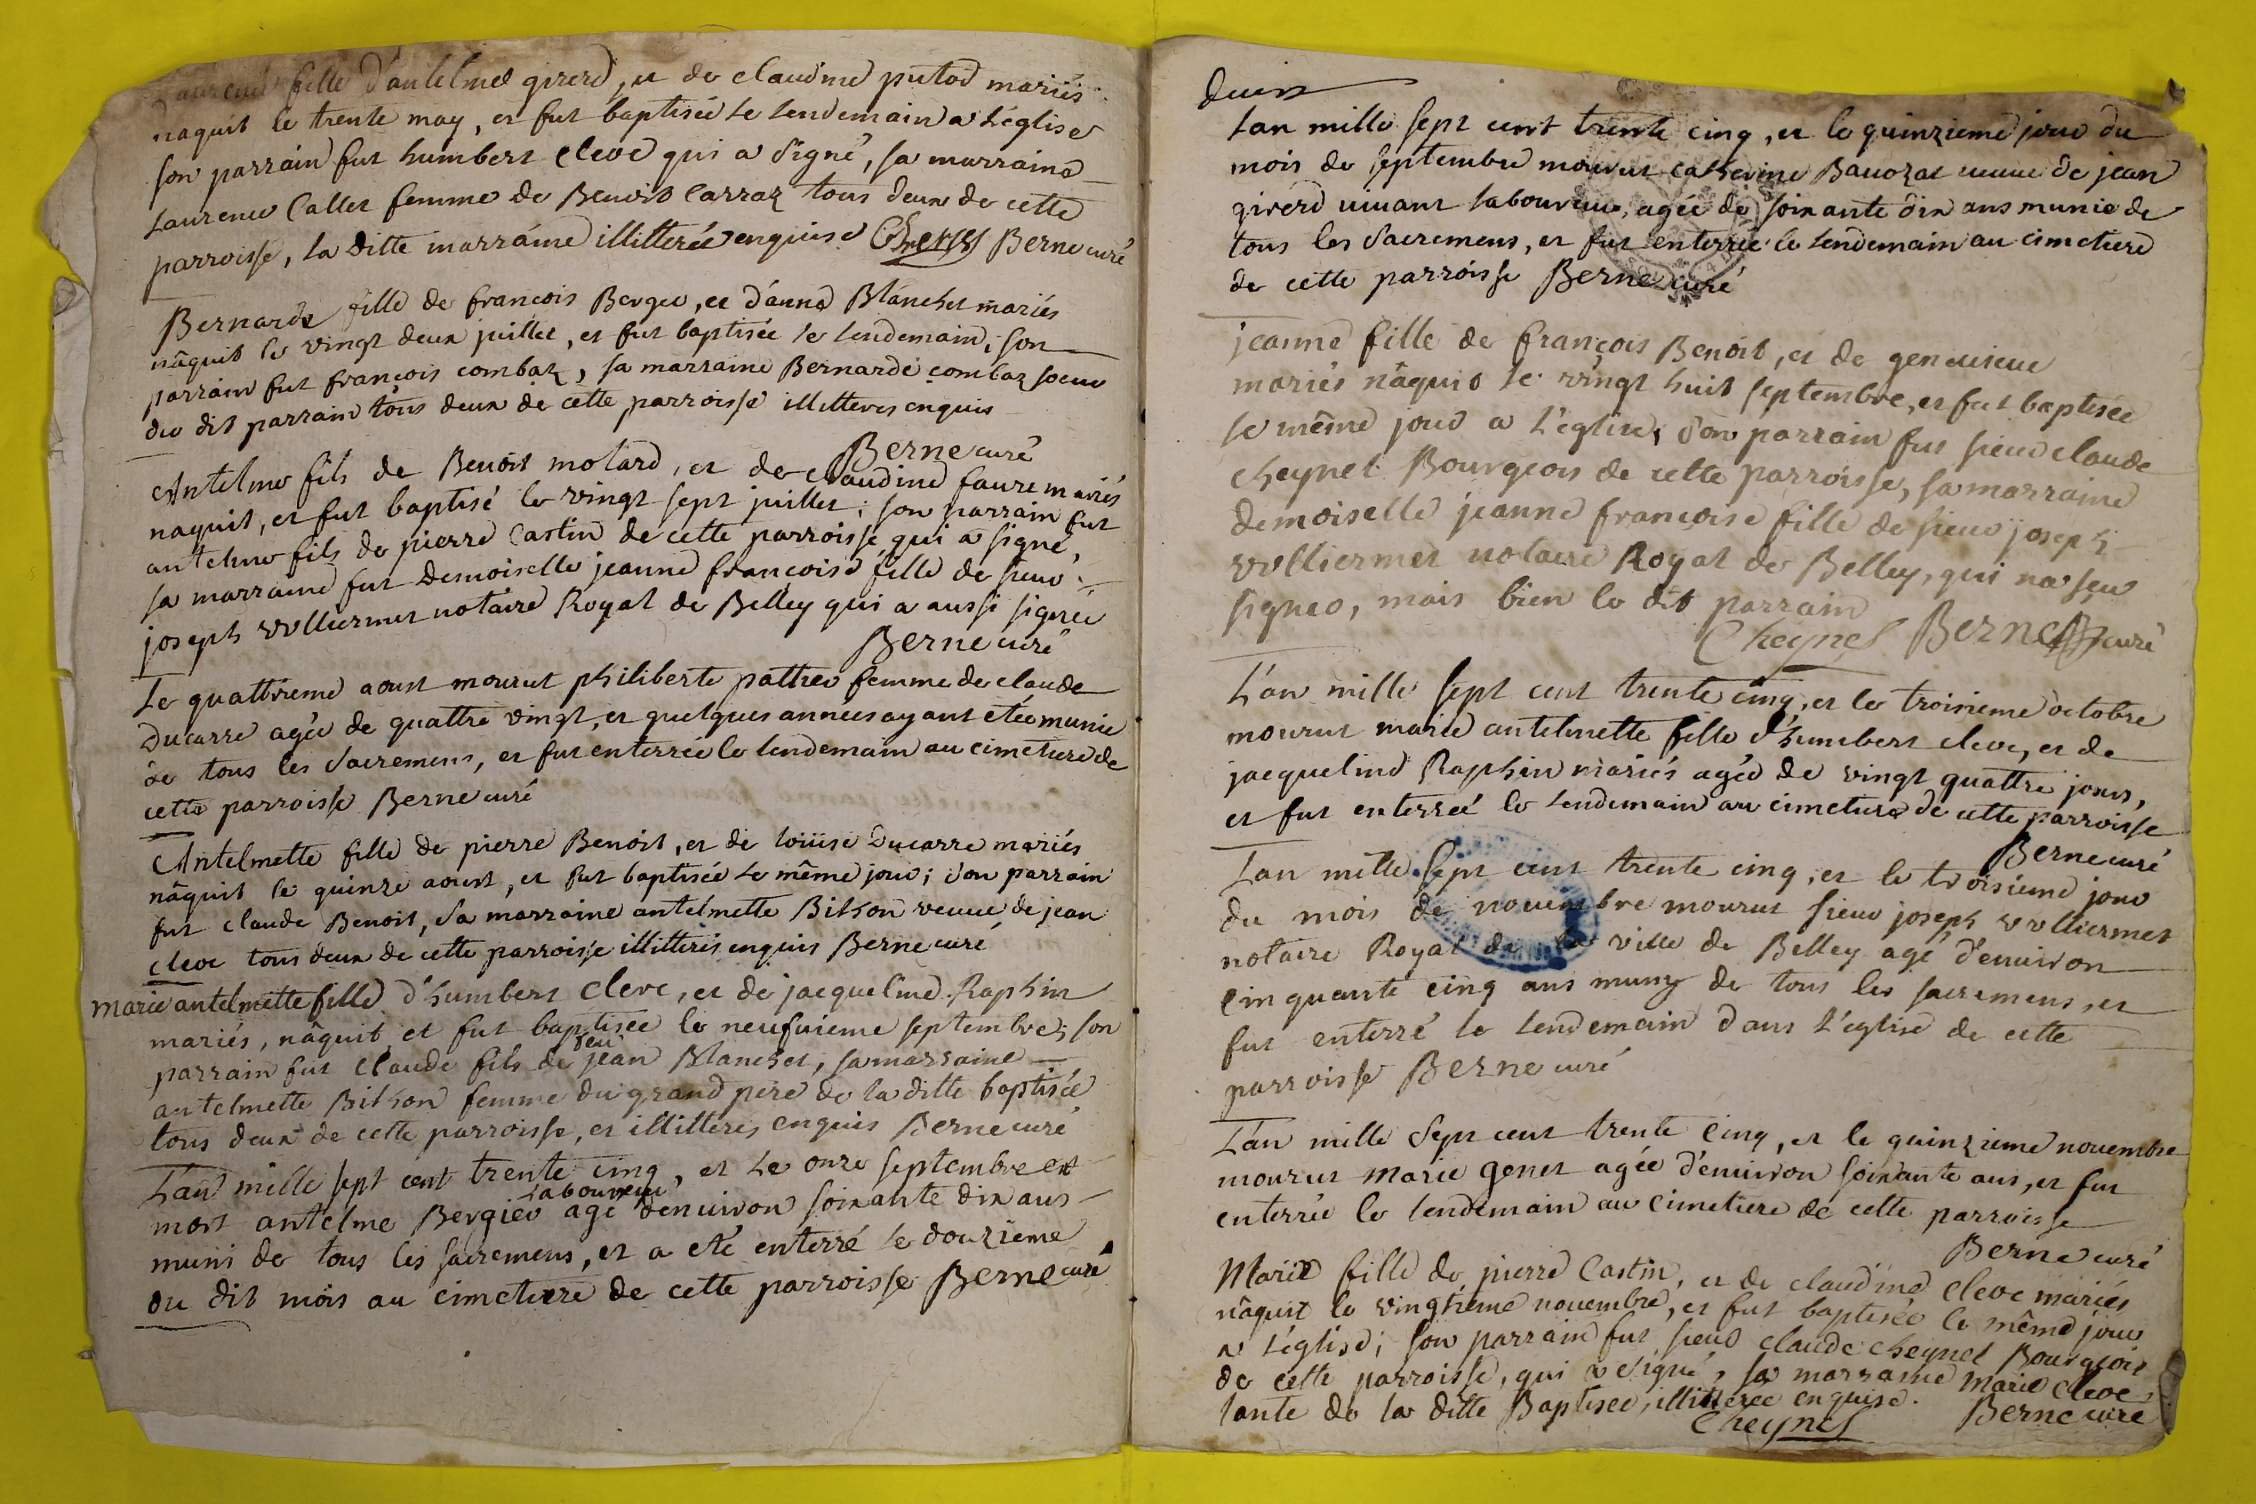 Laurence fille d'antelme girerd, et de claudine putod mariés
naquit le trente may, et fut baptisée le lendemain a l'église
son parrain fut humbert cleve qui a signé, sa marraine
Laurence Callet femme de Benoit Carraz tous deux de cette
parroisse, la ditte marraine illitterée enquise Berne curé
Bernarde fille de francois Berger, et d'anne Blanchet mariés
nâquit le vingt deux juillet, et fut baptisée le lendemain; son
parrain fut francois combaz, sa marraine Bernarde combaz soeur
du dit parrain tous deux de cette parroisse illitteres enquis
Berne curé
Antelme fils de Benoit molard, et de claudine faure mariés
naquit, et fut baptisé le vingt sept juillet; son parrain fut
antelme fils de pierre Castin de cette parroisse qui a signé,
sa marraine fut demoiselle jeanne françoise fille de sieur
joseph vvlliermet notaire Royal de Belley qui a aussi signée
Berne curé
Le quattrieme aoust mourut philiberte pattier femme de claude
Ducarre agée de quattre vingt, et quelques années ayant eté munie
de tous les sacremens, et fut enterrée le lendemain au cimetiere de
cette parroisse Berne curé
Antelmette fille de pierre Benoit, et de loüise Ducarre mariés
nâquit le quinze aoust, et fut baptisée le même jour; son parrain
fut claude Benoit, sa marraine antelmette Bithon veuve de jean
cleve tous deux de cette parroisse illitteris enquis Berne curé
marie antelmette fille d'humbert cleve, et de jacqueline Raphin
mariés, nâquit et fut baptisée le neufvieme septembre; son
parrain fut claude fils de feu jean Blanchet, sa marraine
antelmette Bithon femme du grand pere de la ditte baptisée
tous deux de cette parroisse, et illitteres enquis Berne curé
L'an mille sept cent trente cinq, et le onze septembre est
mort antelme Bergier laboureur agé denuiron soixante dix ans
muni de tous les sacremens, et a eté enterré le douzieme
du dit mois au cimetiere de cette parroisse Berne curé
Lan mille sept cent trente cinq, et le quinzieme jour du
mois de septembre mourut catherine Bauozat veuue de jean
girerd uiuant laboureur, agée de soixante dix ans munie de
tous les sacremens, et fut enterrée le lendemain au cimetiere
de cette parroisse Berne curé
jeanne fille de françois Benoit, et de geneuieue
mariés nâquit le vingt huit septembre, et fut baptisée
le même jour a l'église, son parrain fut sieur claude
cheynel Bourgeois de cette parroisse, sa marraine
demoiselle jeanne françoise fille de sieur joseph
vvlliermet notaire Royal de Belley, qui na sçeu
signer, mais bien le dit parrain
Cheynel Berne curé
L'an mille sept cent trente cinq, et le troisieme octobre
mourut marie antelmette fille d'humbert cleve, et de
jacqueline Raphin mariés agée de vingt quattre jours,
et fut enterreé le lendemain au cimetiere de cette parroisse
Berne curé
Lan mille sept cent trente cinq, et le troisieme jour
du mois de nouembre mourut sieur joseph vvlliermet
notaire Royal de la ville de Belley agé d'enuiron
cinquante cinq ans muny de tous les sacremens, et
fut enterré le lendemain dans l'eglise de cette
parroisse Berne curé
L'an mille sept cent trente cinq, et le quinzieme nouembre
mourut marie genet agée d'enuiron soixante ans, et fut
enterrée le lendemain au cimetiere de cette parroisse
Berne curé
Marie fille de pierre Castin, et de claudine cleve mariés
nâquit le vingtieme nouembre, et fut baptisée le même jour
a l'église; son parrain fut sieur claude cheynel Bourgeois
de cette parroisse, qui a signé, sa marraine marie cleve
tante de la ditte Baptisée, illitterée enquise.
Cheynel Berne curé